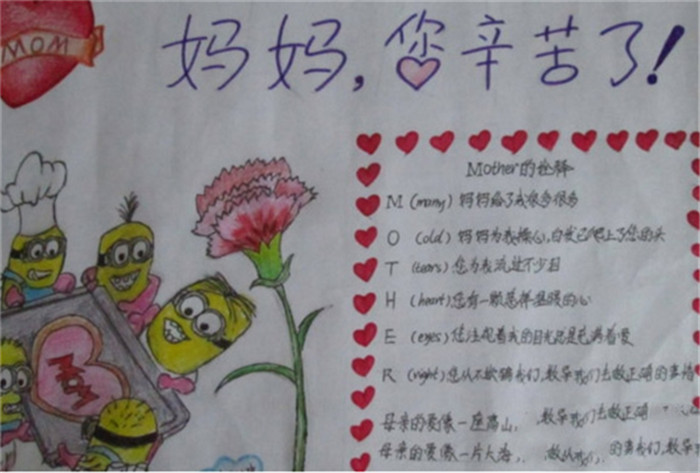 MOM
妈妈,您辛苦了!
Mother的诠释
M (many) 妈妈给了我很多很多
O (old) 妈妈为我操心,白发已爬上了您的头
T (tears) 您为我流过不少泪
H (heart) 您有一颗慈祥温暖的心
E (eyes) 您注视着我的目光总是充满着爱
R (right) 您从不欺骗我们,教导我们去做正确的事情
母亲的爱像一座高山, 教导我们去做正确
母亲的爱像一片大海, 做从我们, 的事我们,教导
MOM